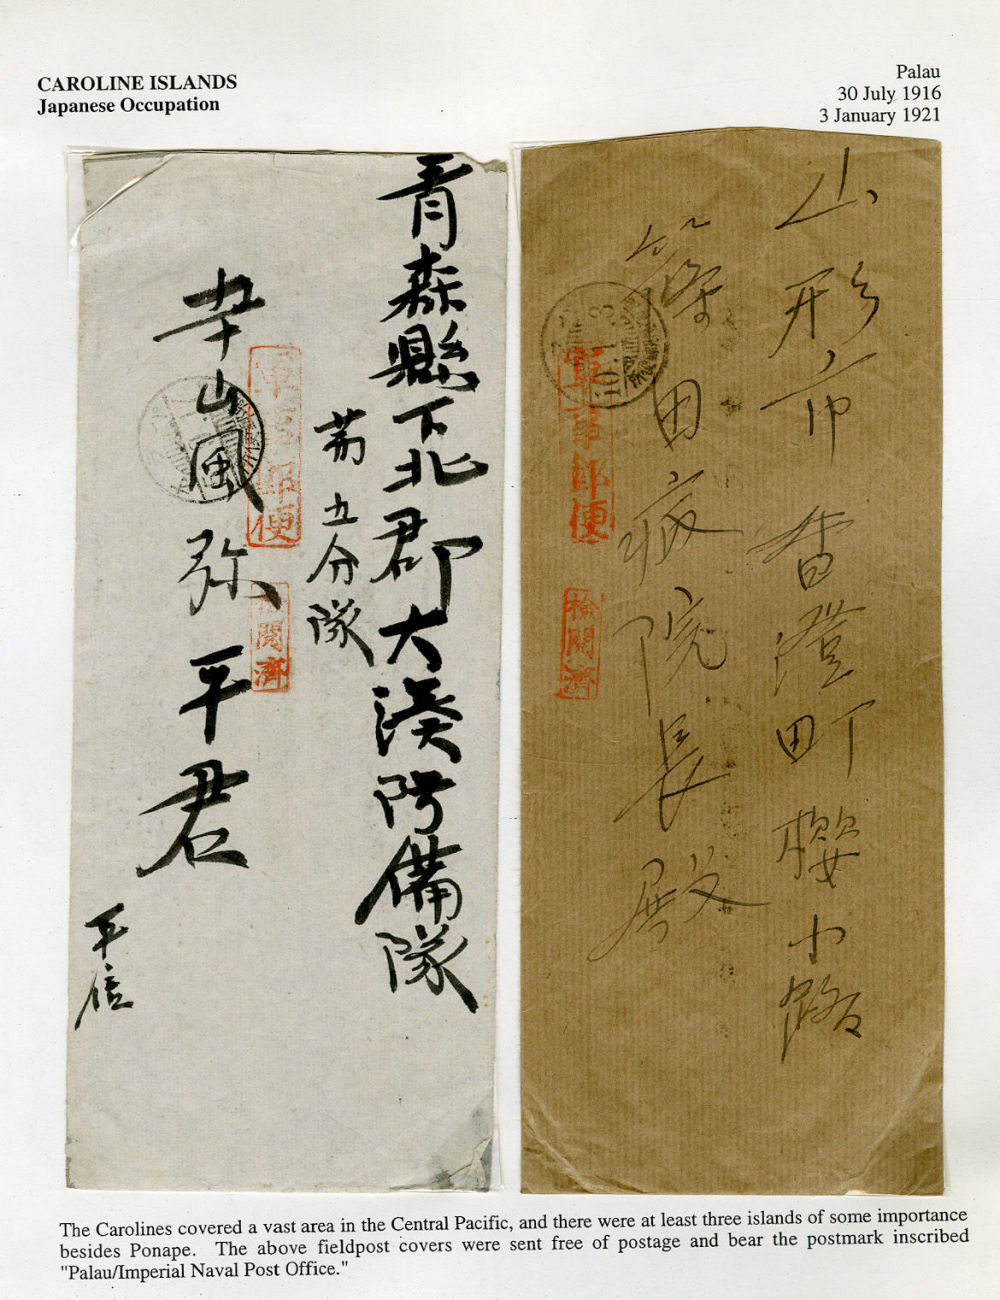 CAROLINE ISLANDS
Japanese Occupation
Palau
30 July 1916
3 January 1921
青森縣下北郡大湊防備隊
第五分隊
山風弥平君
平信
軍事郵便
検閲済
山形市香澄町櫻小路
篠田病院長殿
軍事郵便
検閲濟
10.1.3
The Carolines covered a vast area in the Central Pacific, and there were at least three islands of some importance
besides Ponape. The above fieldpost covers were sent free of postage and bear the postmark inscribed
"Palau/Imperial Naval Post Office."